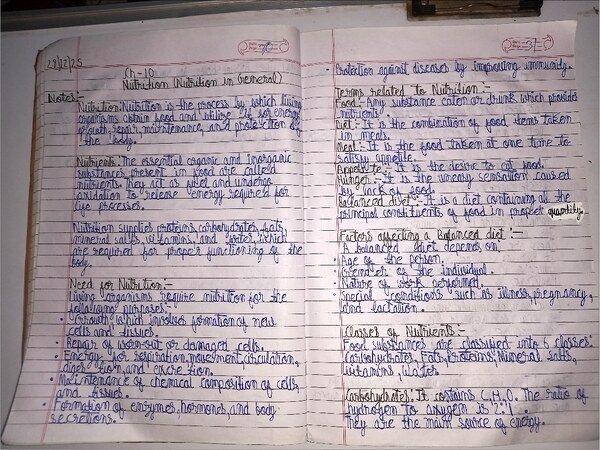 28/12/25
Ch-10
Nutrition (Nutrition in General)
Notes:-
Nutrition: Nutrition is the process by which living
organisms obtain food and utilize it for energy,
growth, repair, maintenance, and protection of
the body.
Nutrients: The essential organic and inorganic
substances present in food are called
nutrients. They act as fuel and undergo
oxidation to release energy required for
life processes.
Nutrition supplies proteins, carbohydrates, fats,
mineral salts, vitamins, and water, which
are required for proper functioning of the
body.
Need for Nutrition:-
Living organisms require nutrition for the
following purposes:-
• Growth, which involves formation of new
cells and tissues.
• Repair of worn-out or damaged cells.
• Energy for respiration, movement, circulation,
digestion, and excretion.
• Maintenance of chemical composition of cells
and tissues.
Formation of enzymes, hormones, and body
secretions.
• Protection against diseases by improving immunity.
Terms related to Nutrition:-
Food:- Any substance eaten or drunk which provides
nutrients.
Diet:- It is the combination of food items taken
in meals.
Meal:- It is the food taken at one time to
satisfy appetite.
Appetite:- It is the desire to eat food.
Hunger:- It is the uneasy sensation caused
by lack of food.
Balanced diet:- It is a diet containing all the
principal constituents of food in proper quantity.
Factors affecting a Balanced diet:-
A balanced diet depends on:
• Age of the person.
• Gender of the individual.
• Nature of work performed.
• Special conditions such as illness, pregnancy,
and lactation.
Classes of Nutrients:-
Food substances are classified into 6 classes:
Carbohydrates, Fats, Proteins, Mineral salts,
Vitamins, Water.
Carbohydrates: It contains C, H, O. The ratio of
hydrogen to oxygen is 2:1.
They are the main source of energy.